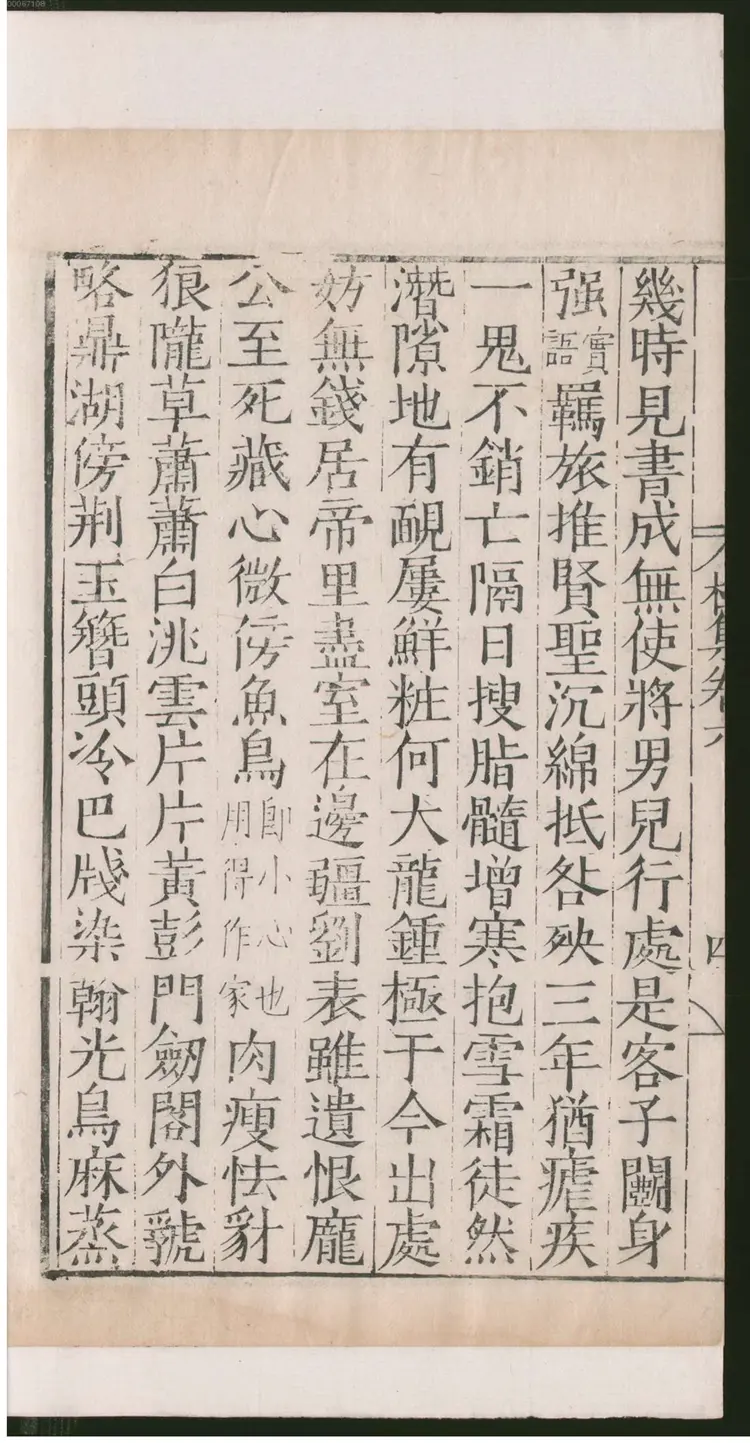 幾時見書成無使將男兒行處是客子鬭身
强實語羈旅推賢聖沉綿抵咎殃三年猶瘧疾
一鬼不銷亡隔日搜脂髓增寒抱雪霜徒然
潛隙地有靦屢鮮粧何大龍鍾極于今出處
妨無錢居帝里盡室在邊疆劉表雖遺恨龐
公至死藏心微傍魚鳥卽小心也用得作家肉瘦怯豺
狼隴草蕭蕭白洮雲片片黃彭門劒閣外虢
略鼎湖傍荆玉簪頭冷巴牋染翰光烏麻蒸